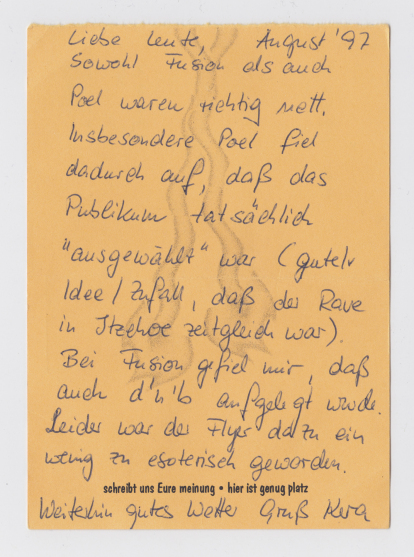 Liebe Leute, August '97
Sowohl Fusion als auch
Poel waren richtig nett.
Insbesondere Poel fiel
dadurch auf, daß das
Publikum tatsächlich
"ausgewählt" war (gute
Idee/Zufall, daß der Rave
in Itzehoe zeitgleich war).
Bei Fusion gefiel mir, daß
auch d'n'b aufgelegt wurde.
Leider war der Flyer dazu ein
wenig zu esoterisch geworden.
schreibt uns Eure meinung • hier ist genug platz
Weiterhin gutes Wetter Gruß